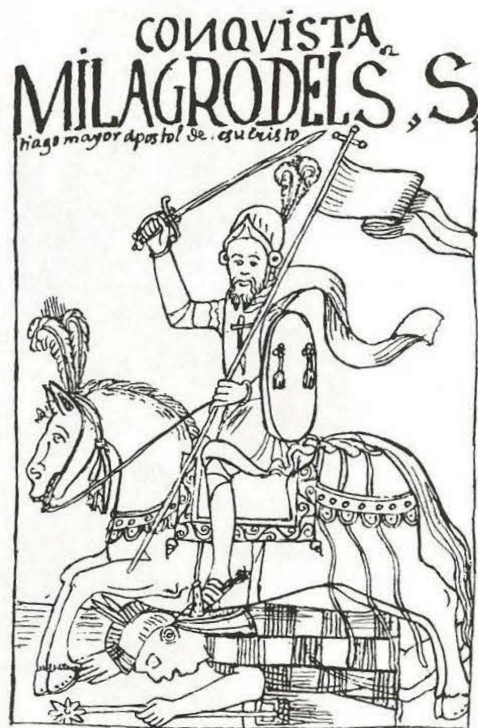 CONQVISTA
MILAGRODELS , S,
tiago mayor apostol de . esucristo